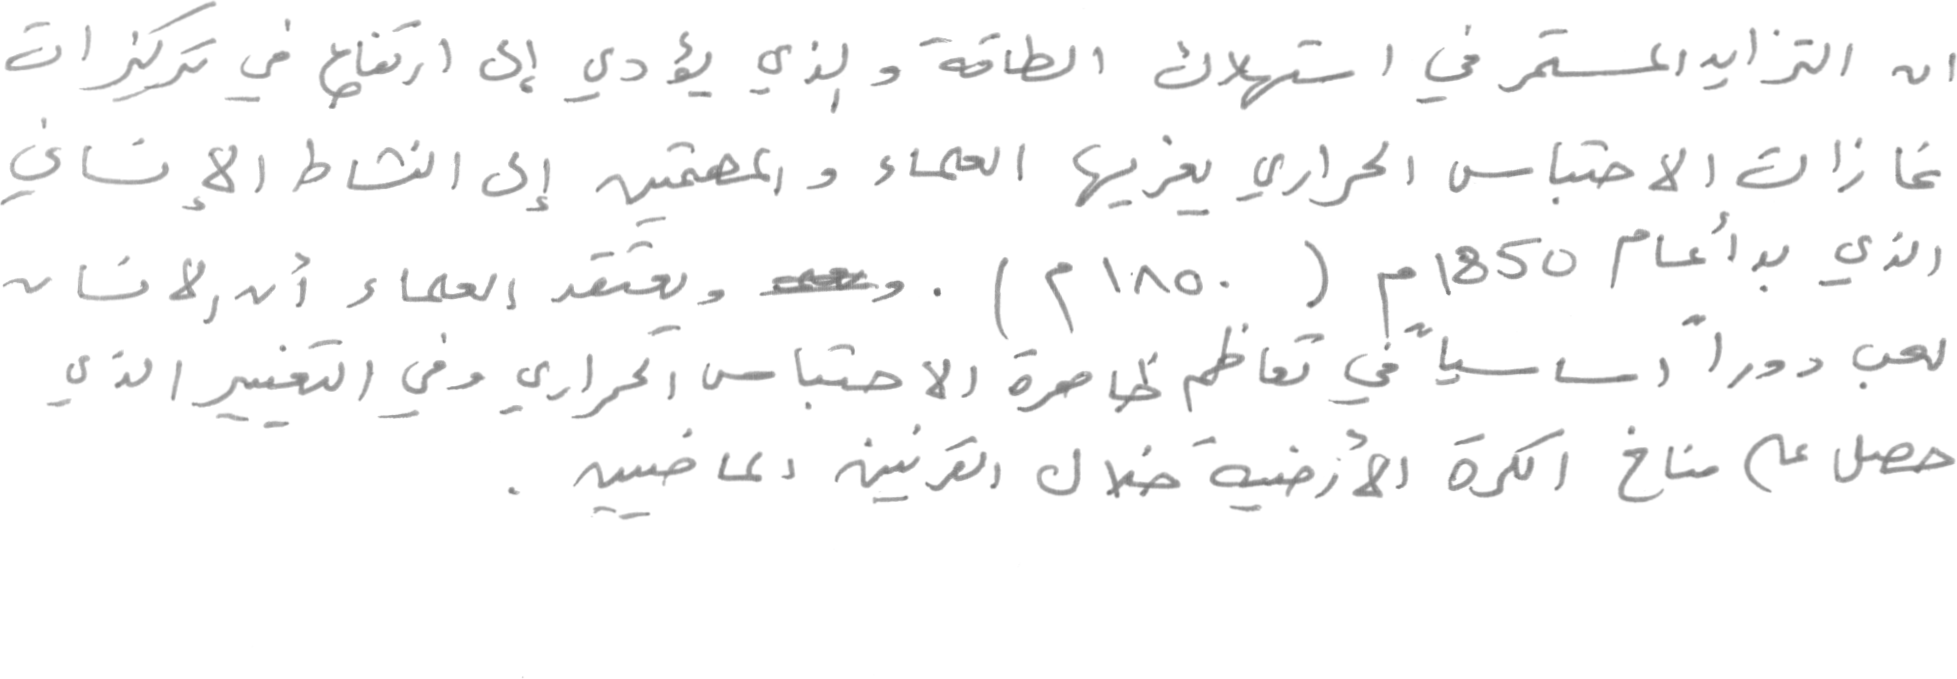 ان التزايد المستمر في استهلاك الطاقة والذي يؤدي إلى ارتفاع في تركيزات
غازات الاحتباس الحراري يعزيها العلماء والمهتمين إلى النشاط الإنساني
الذي بدأ عام 1850م ( ١٨٥٠م ) . ويعتقد العلماء أن الانسان
لعب دوراً اساسياً في تعاظم ظاهرة الاحتباس الحراري وفي التغيير الذي
حصل على مناخ الكرة الأرضية خلال القرنين الماضيين .